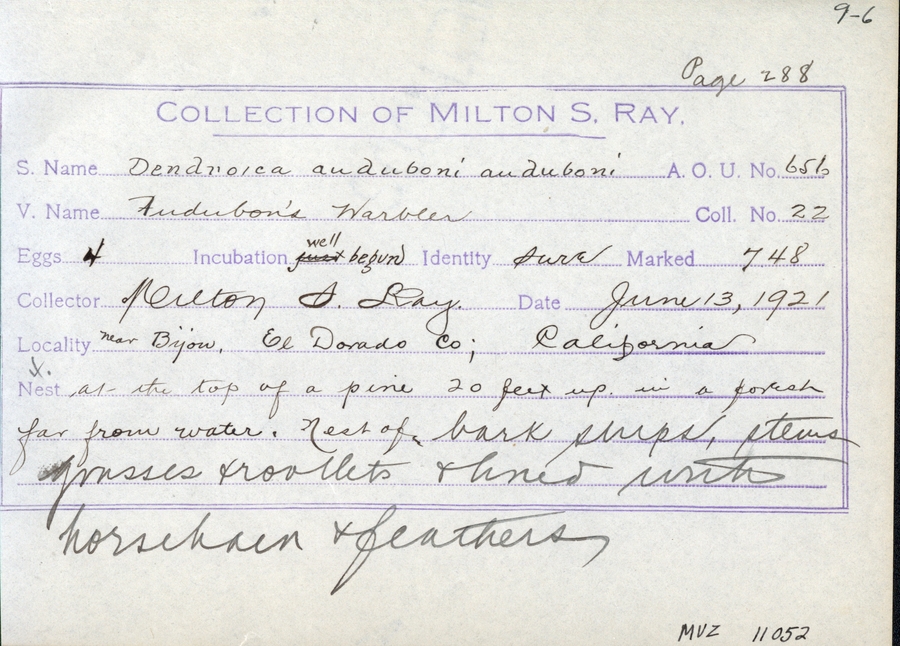 9-6
Page 288
COLLECTION OF MILTON S. RAY.
S. Name Dendroica auduboni auduboni A. O. U. No. 656
V. Name Audubon's Warbler Coll. No. 22
Eggs 4 Incubation just well begun Identity sure Marked 748
Collector Milton S. Ray. Date June 13, 1921
Locality near Bijou, El Dorado Co; California
X.
Nest at the top of a pine 20 feet up in a forest
far from water. Nest of bark strips, stems
grasses & rootlets & lined with
horsehair & feathers
MVZ 11052